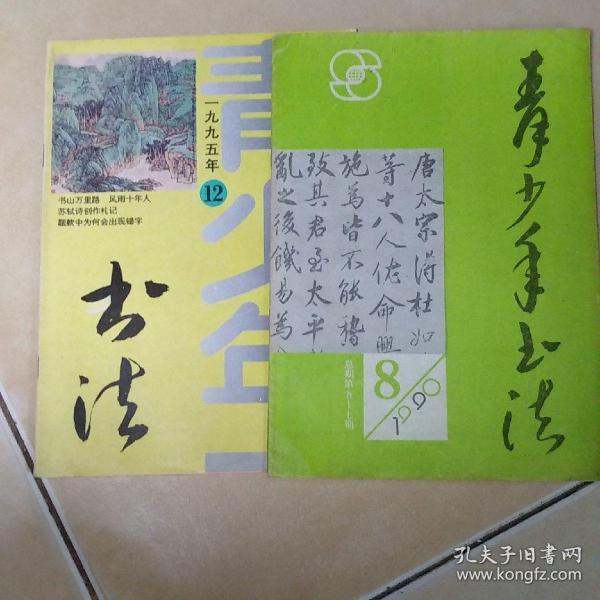 青少年
一九九五年
12
书山万里路　风雨十年人
苏轼诗创作札记
题款中为何会出现错字
书法
青少年书法
唐太宗得杜如
等十八人佐命興
施為皆不能稽
致其君至太平
亂之後饑易為
8
1990
总期第五十七期
孔夫子旧书网
www.kongfz.com